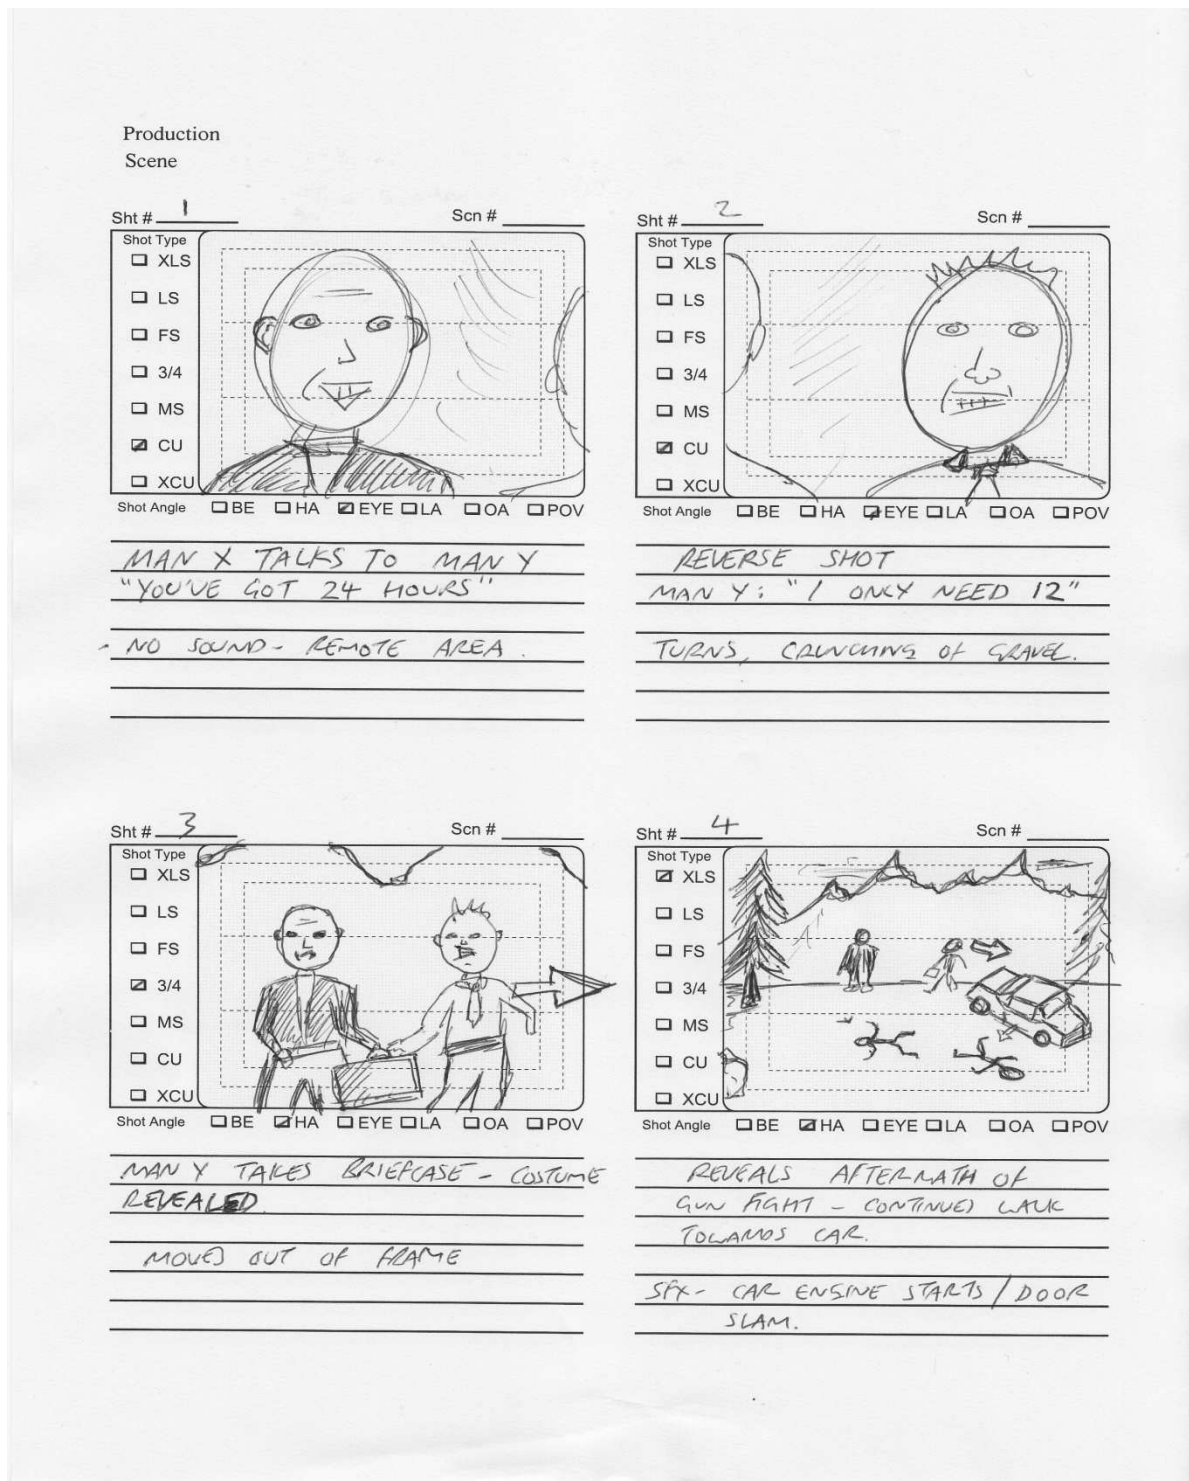 Production
Scene
Sht # 1 Scn #
Shot Type
XLS
LS
FS
3/4
MS
CU
XCU
Shot Angle BE HA EYE LA OA POV
MAN X TALKS TO MAN Y
"YOU'VE GOT 24 HOURS"
- NO SOUND - REMOTE AREA.
Sht # 2 Scn #
Shot Type
XLS
LS
FS
3/4
MS
CU
XCU
Shot Angle BE HA EYE LA OA POV
REVERSE SHOT
MAN Y: "I ONLY NEED 12"
TURNS, CRUNCHING OF GRAVEL.
Sht # 3 Scn #
Shot Type
XLS
LS
FS
3/4
MS
CU
XCU
Shot Angle BE HA EYE LA OA POV
MAN Y TAKES BRIEFCASE - COSTUME
REVEALED.
MOVES OUT OF FRAME
Sht # 4 Scn #
Shot Type
XLS
LS
FS
3/4
MS
CU
XCU
Shot Angle BE HA EYE LA OA POV
REVEALS AFTERMATH OF
GUN FIGHT - CONTINUED WALK
TOWARDS CAR.
SFX - CAR ENGINE STARTS / DOOR
SLAM.